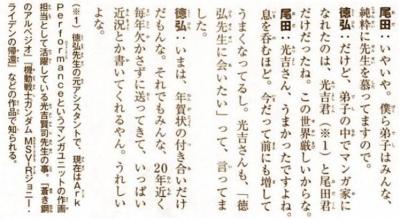 尾田：いやいや。僕ら弟子はみんな、
純粋に先生を慕ってますので。
徳弘：だけど、弟子の中でマンガ家に
なれたのは、光吉君（※1）と尾田君
だけだしたね。この世界厳しいからな。
尾田：光吉さん、うまかったですよね。
息を呑むほど。今だって前にも増して
うまくなってるし。光吉さんも、「徳
弘先生に会いたい」って、言ってま
した。
徳弘：いまは、年賀状の付き合いだけ
だもんな。それでもみんな、20年近く
毎年欠かさずに送ってきて、いっぱい
近況とか書いてくれるやん。うれしい
よな。
（※1）徳弘先生の元アシスタントで、現在はArk
Performanceというマンガユニットの作画
担当として活躍している光吉賢司先生の事。『蒼き鋼
のアルペジオ』『機動戦士ガンダム MSV-R ジョニー・
ライデンの帰還』などの作品で知られる。